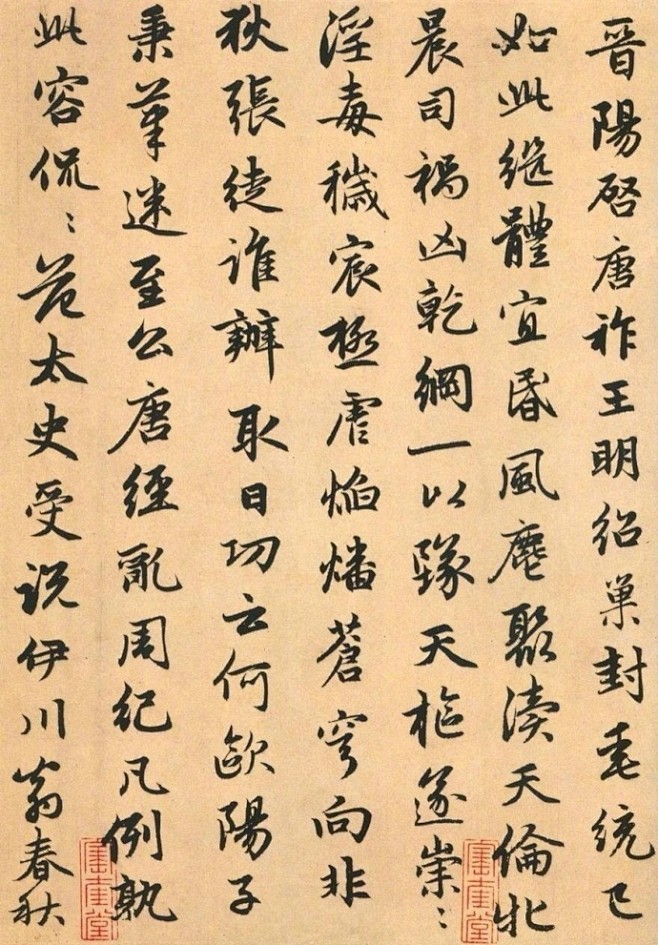 晉陽啓唐祚王明紹巢封垂統已
如此繼體宜昏風麀聚瀆天倫牝
晨司禍凶乾綱一以墜天樞遂崇〻
淫毒穢宸極虐焰燔蒼穹向非
狄張徒誰辦取日功云何歐陽子
秉筆迷至公唐經亂周紀凡例孰
此容侃〻范太史受說伊川翁春秋